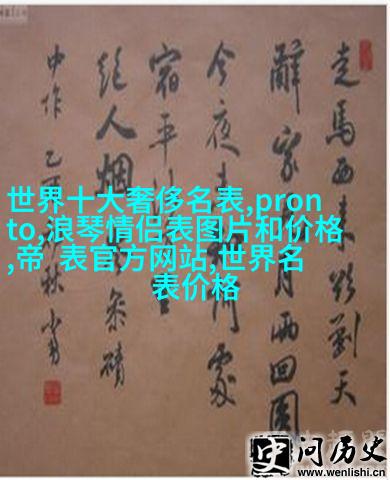 世界十大奢侈名表,pron
to,浪琴情侣表图片和价格
,帝 表官方网站,世界名
表价格
走馬西来欲到天
辭家月两回圆
今夜處
宿平
絕人烟岑碛
中作 乙秋
史问历史
www.wenlishi.cn